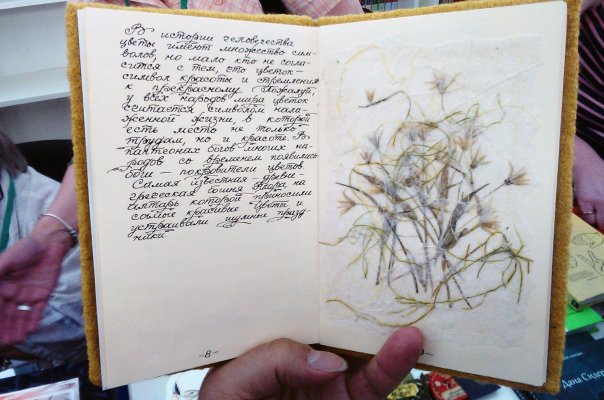 В истории человечества
цветы имеют множество сим-
волов, но мало кто не согла-
сится с тем, что цветок-
символ красоты и стремления
к прекрасному. Пожалуй,
у всех народов мира цветок
считается символом нала-
женной жизни, в которой
есть место не только
трудам, но и красоте. В
пантеонах богов многих на-
родов со временем появились
боги - покровители цветов.
Самая известная - древне-
греческая богиня Флора, на
алтарь которой приносили
самые красивые цветы и
устраивали шумные празд-
ники.
-8-
Дана Сидер